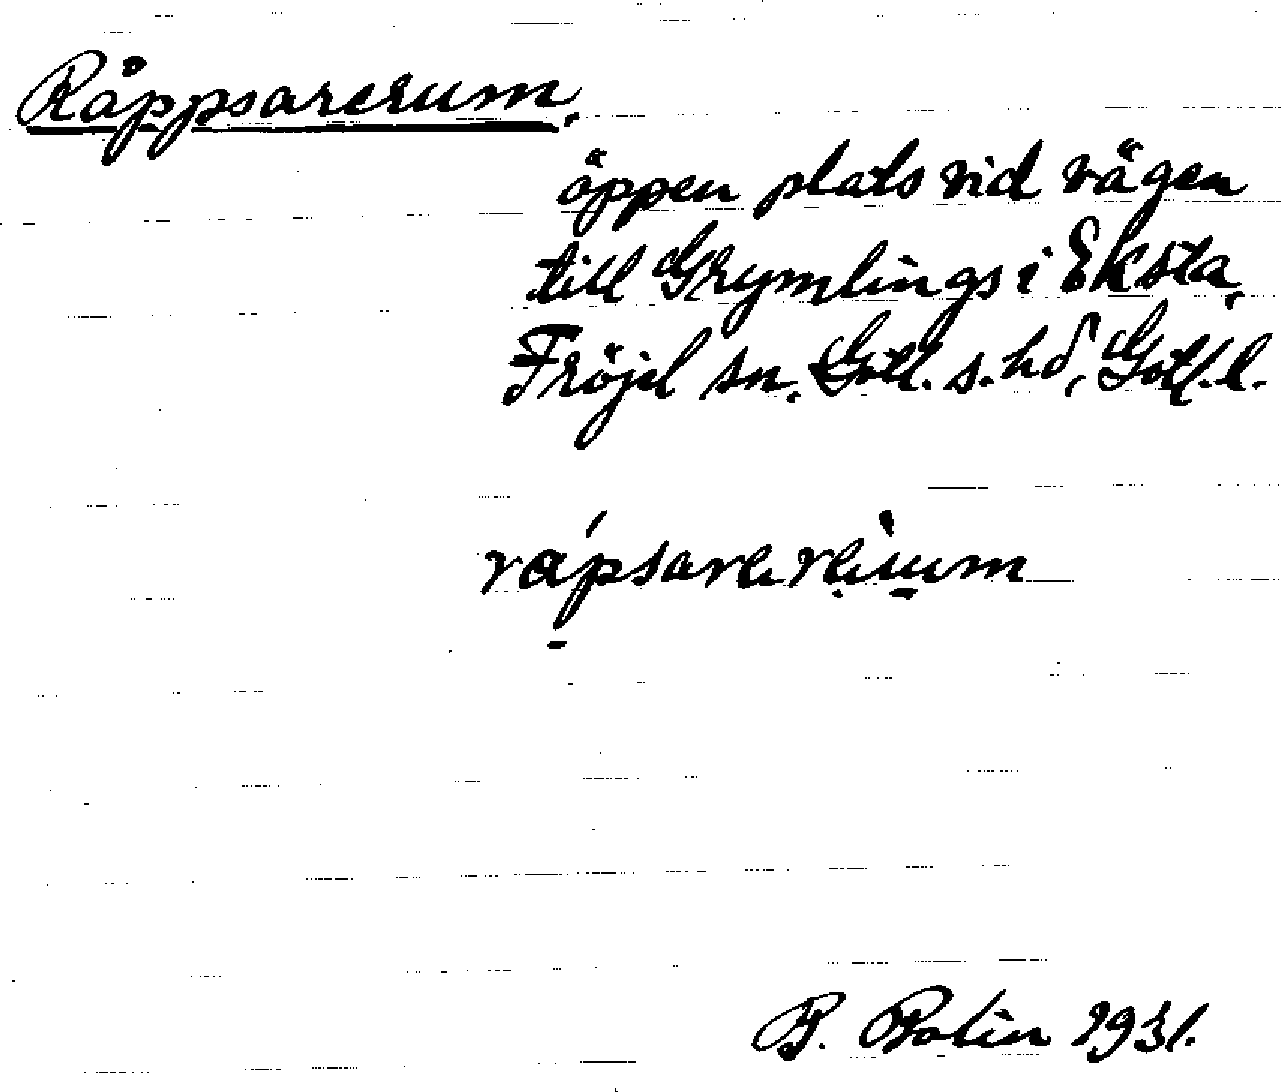 Råppsarerum.
öppen plats vid vägen
till Grymlings i Eksta,
Fröjel sn. Gotl. s. hd, Gotl. l.
B. Bolin 1931.